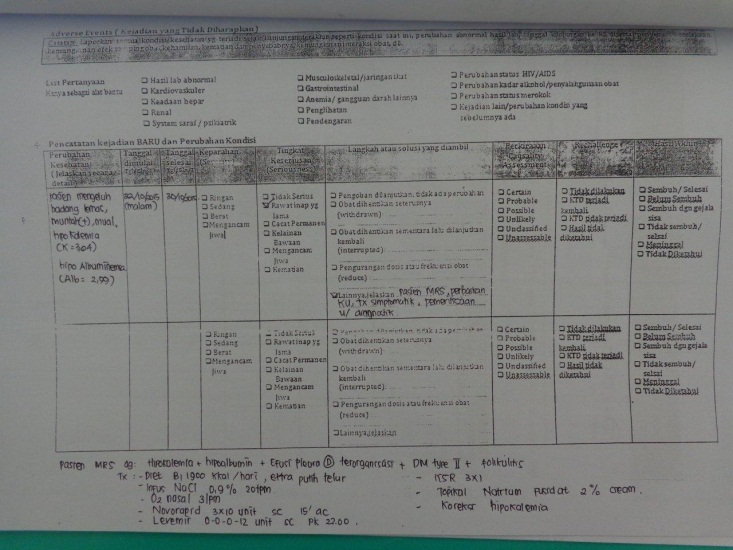 Adverse Events ( Kejadian yang Tidak Diharapkan )
List Pertanyaan
Hanya sebagai alat bantu
☐ Hasil lab abnormal
☐ Kardiovaskuler
☐ Keadaan hepar
☐ Renal
☐ System saraf / psikiatrik
☐ Musculoskeletal/jaringan ikat
☐ Gastrointestinal
☐ Anemia/ gangguan darah lainnya
☐ Penglihatan
☐ Pendengaran
☐ Perubahan status HIV/AIDS
☐ Perubahan kadar alkohol/penyalahgunaan obat
☐ Perubahan status merokok
☐ Kejadian lain/perubahan kondisi yang
sebelumnya ada
Pencatatan kejadian BARU dan Perubahan Kondisi
Perubahan
Kesehatan
(Jelaskan secara
detail)
Tanggal
dimulai
Tanggal
selesai
Keparahan
Tingkat
Keseriusan
(Seriousness)
Langkah atau solusi yang diambil
Perkiraan
Causality
Assessment
Rechallenge
Hasil Akhir
Pasien mengeluh
badang lemas,
muntah(+), mual,
hipokalemia
(K = 3,04)
hipo Albuminemia
(Alb = 2,99)
(malam)
☐ Ringan
☐ Sedang
☐ Berat
☐ Mengancam
Jiwa
☐ Tidak Serius
☑ Rawat inap yg
lama
☐ Cacat Permanen
☐ Kelainan
Bawaan
☐ Mengancam
Jiwa
☐ Kematian
☐ Pengobatan dilanjutkan, tidak ada perubahan
☐ Obat dihentikan seterusnya
(withdrawn)
☐ Obat dihentikan sementara lalu dilanjutkan
kembali
(interrupted)
☐ Pengurangan dosis atau frekuensi obat
(reduce)
☑ Lainnya, jelaskan Pasien MRS, perbaikan
KU, Tx simptomatik, pemeriksaan
u/ diagnostik
☐ Certain
☐ Probable
☐ Possible
☐ Unlikely
☐ Unclassified
☐ Unassessable
☐ Tidak dilakukan
☐ KTD terjadi
kembali
☐ KTD tidak terjadi
☐ Hasil tidak
diketahui
☐ Sembuh/ Selesai
☐ Belum Sembuh
☐ Sembuh dgn gejala
sisa
☐ Tidak sembuh/
selesai
☐ Meninggal
☐ Tidak Diketahui
☐ Ringan
☐ Sedang
☐ Berat
☐ Mengancam
Jiwa
☐ Tidak Serius
☐ Rawat inap yg
lama
☐ Cacat Permanen
☐ Kelainan
Bawaan
☐ Mengancam
Jiwa
☐ Kematian
☐ Obat dihentikan seterusnya
(withdrawn)
☐ Obat dihentikan sementara lalu dilanjutkan
kembali
(interrupted)
☐ Pengurangan dosis atau frekuensi obat
(reduce)
☐ Lainnya, jelaskan
☐ Certain
☐ Probable
☐ Possible
☐ Unlikely
☐ Unclassified
☐ Unassessable
☐ Tidak dilakukan
☐ KTD terjadi
kembali
☐ KTD tidak terjadi
☐ Hasil tidak
diketahui
☐ Sembuh/ Selesai
☐ Belum Sembuh
☐ Sembuh dgn gejala
sisa
☐ Tidak sembuh/
selesai
☐ Meninggal
☐ Tidak Diketahui
Pasien MRS dg: Hipokalemia + hipoalbumin + Efusi Pleura (D) terorganisasi + DM type II + folikulitis
Tx : - Diet B1 1900 kkal/hari, extra putih telur
- Infus NaCl 0,9% 20tpm
- O2 nasal 3lpm
- Novorapid 3x10 unit sc 15' ac
- Levemir 0-0-0-12 unit sc pk 22.00.
- KSR 3x1
- Topikal Natrium Fusidat 2% cream.
- Koreksi hipokalemia